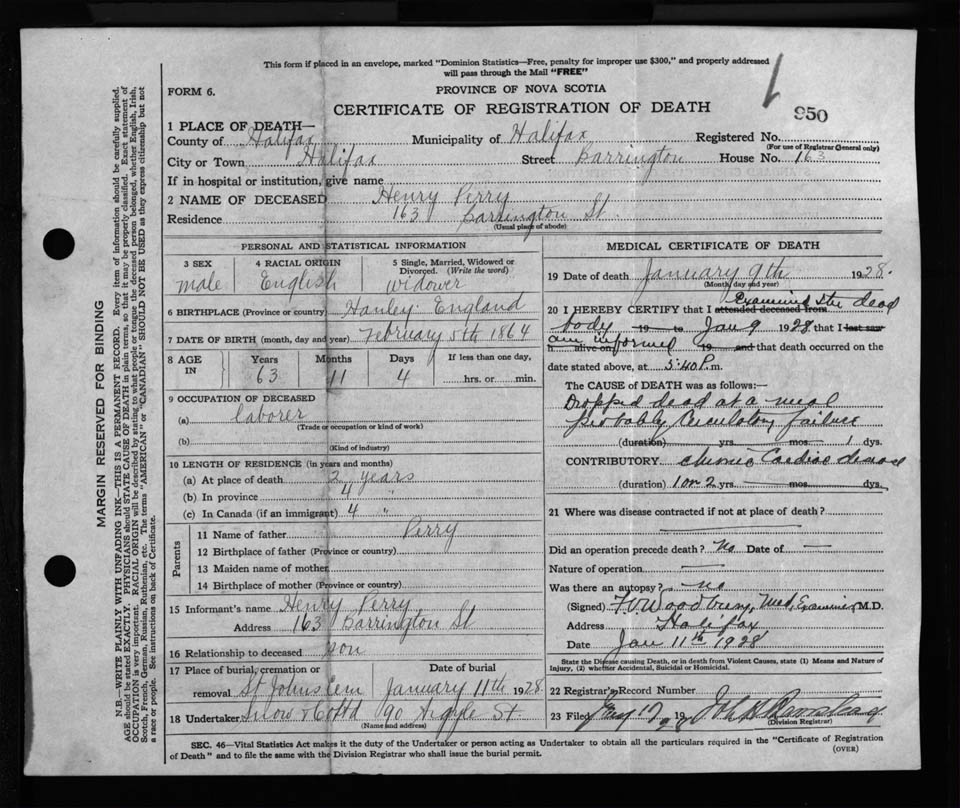 This form if placed in an envelope, marked "Dominion Statistics—Free, penalty for improper use $300," and properly addressed
will pass through the Mail "FREE"
FORM 6.
PROVINCE OF NOVA SCOTIA
950
CERTIFICATE OF REGISTRATION OF DEATH
1 PLACE OF DEATH—
County of Halifax Municipality of Halifax Registered No.
(For use of Registrar General only)
City or Town Halifax Street Barrington House No. 163
If in hospital or institution, give name
2 NAME OF DECEASED Henry Perry
Residence 163 Barrington St.
(Usual place of abode)
PERSONAL AND STATISTICAL INFORMATION
3 SEX 4 RACIAL ORIGIN 5 Single, Married, Widowed or
Divorced. (Write the word)
male English widower
6 BIRTHPLACE (Province or country) Hanley England
7 DATE OF BIRTH (month, day and year) February 5th 1864
8 AGE IN Years Months Days If less than one day,
63 11 4 hrs. or min.
9 OCCUPATION OF DECEASED
(a) laborer
(Trade or occupation or kind of work)
(b)
(Kind of industry)
10 LENGTH OF RESIDENCE (in years and months)
(a) At place of death 2 years
(b) In province 4 "
(c) In Canada (if an immigrant) 4 "
Parents
11 Name of father Perry
12 Birthplace of father (Province or country)
13 Maiden name of mother
14 Birthplace of mother (Province or country)
15 Informant's name Henry Perry
Address 163 Barrington St
16 Relationship to deceased son
17 Place of burial, cremation or Date of burial
removal St Johns Cem January 11th 1928
18 Undertaker Snow & Co Ltd 90 Argyle St.
(Name and address)
MEDICAL CERTIFICATE OF DEATH
19 Date of death January 9th 1928.
(Month, day and year)
Examined the dead
20 I HEREBY CERTIFY that I attended deceased from
body 19 to Jan 9 1928 that I last saw
am informed
h alive on 19 and that death occurred on the
date stated above, at 5:40 P.m.
The CAUSE of DEATH was as follows:—
Dropped dead at a meal
probably Circulatory failure
(duration) yrs. mos. 1 dys.
CONTRIBUTORY chronic Cardiac disease
(duration) 1 or 2 yrs. mos. dys.
21 Where was disease contracted if not at place of death?
Did an operation precede death? No Date of —
Nature of operation —
Was there an autopsy? no
(Signed) F.V. Woodbury, Med. Examiner M.D.
Address Halifax
Date Jan 11th 1928
State the Disease causing Death, or in death from Violent Causes, state (1) Means and Nature of
Injury, (2) whether Accidental, Suicidal or Homicidal.
22 Registrar's Record Number
23 Filed 19
(Division Registrar)
SEC. 46—Vital Statistics Act makes it the duty of the Undertaker or person acting as Undertaker to obtain all the particulars required in the "Certificate of Registration
of Death" and to file the same with the Division Registrar who shall issue the burial permit.
(OVER)
MARGIN RESERVED FOR BINDING
N.B.—WRITE PLAINLY WITH UNFADING INK—THIS IS A PERMANENT RECORD. Every item of information should be carefully supplied.
AGE should be stated EXACTLY. PHYSICIANS should STATE CAUSE OF DEATH in plain terms, so that it may be properly classified. Exact statement of
OCCUPATION is very important. RACIAL ORIGIN will be described by stating to what people or tongue the deceased person belonged, whether English, Irish,
Scotch, French, German, Russian, Ruthenian, etc. The terms "AMERICAN" or "CANADIAN" SHOULD NOT BE USED as they express citizenship but not
a race or people. See instructions on back of Certificate.